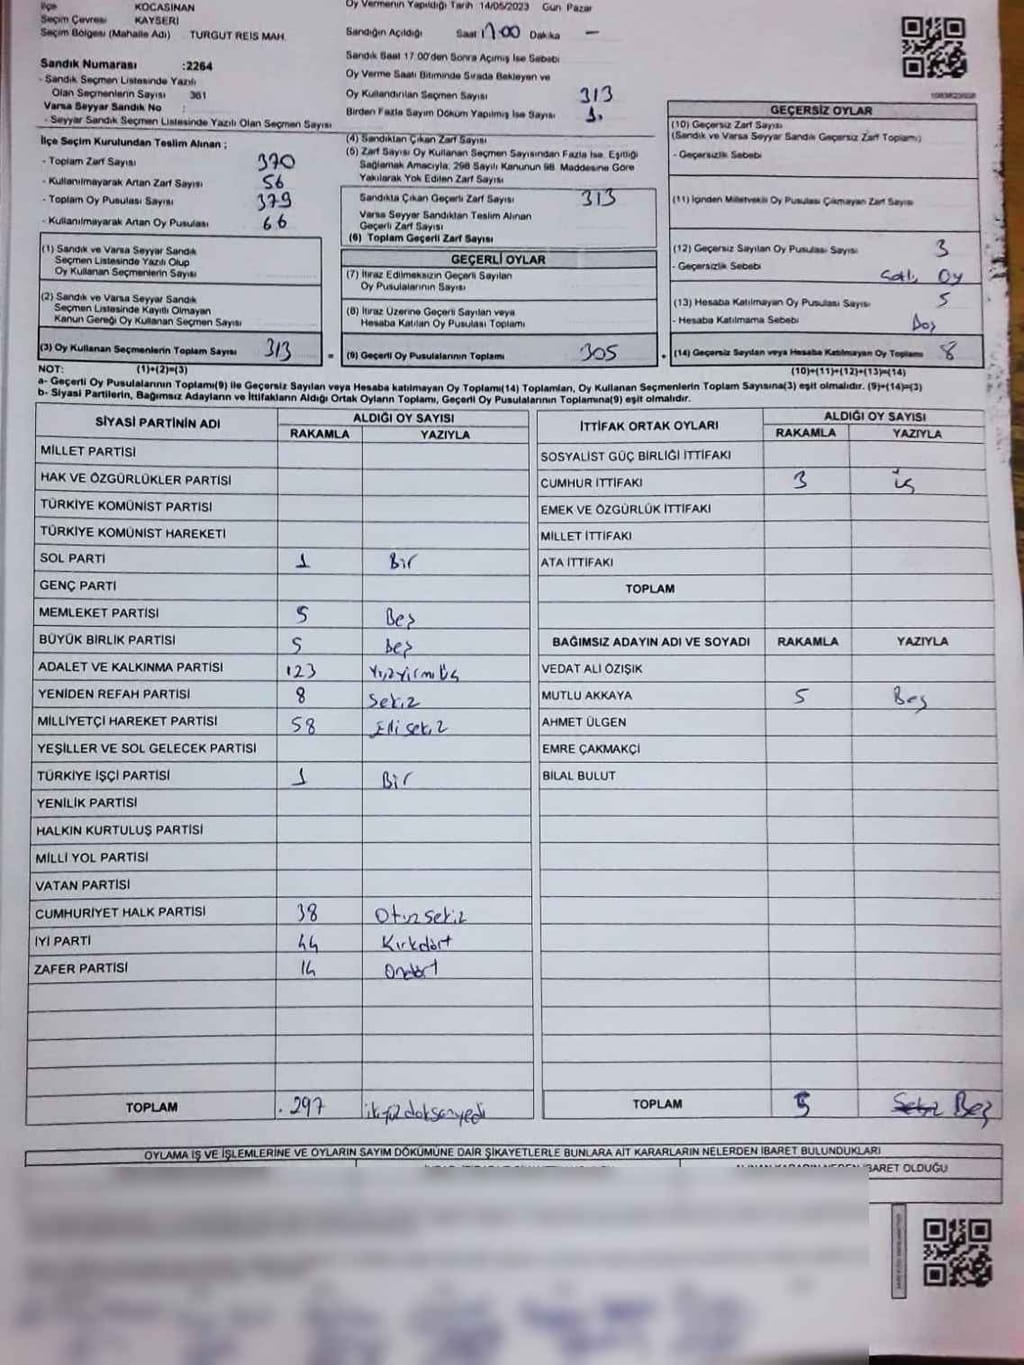 İlçe KOCASİNAN
Seçim Çevresi KAYSERİ
Seçim Bölgesi (Mahalle Adı) TURGUT REİS MAH.
Sandık Numarası :2264
- Sandık Seçmen Listesinde Yazılı
Olan Seçmenlerin Sayısı 361
Varsa Seyyar Sandık No :
- Seyyar Sandık Seçmen Listesinde Yazılı Olan Seçmen Sayısı
Oy Vermenin Yapıldığı Tarih 14/05/2023 Gün Pazar
Sandığın Açıldığı Saat 17:00 Dakika —
Sandık Saat 17:00'den Sonra Açılmış İse Sebebi
Oy Verme Saati Bitiminde Sırada Bekleyen ve
Oy Kullandırılan Seçmen Sayısı 313
Birden Fazla Sayım Döküm Yapılmış İse Sayısı 1.
İlçe Seçim Kurulundan Teslim Alınan ;
- Toplam Zarf Sayısı 370
- Kullanılmayarak Artan Zarf Sayısı 56
- Toplam Oy Pusulası Sayısı 379
- Kullanılmayarak Artan Oy Pusulası 66
(1) Sandık ve Varsa Seyyar Sandık
Seçmen Listesinde Yazılı Olup
Oy Kullanan Seçmenlerin Sayısı
(2) Sandık ve Varsa Seyyar Sandık
Seçmen Listesinde Kayıtlı Olmayan
Kanun Gereği Oy Kullanan Seçmen Sayısı
(3) Oy Kullanan Seçmenlerin Toplam Sayısı 313
(4) Sandıktan Çıkan Zarf Sayısı
(5) Zarf Sayısı Oy Kullanan Seçmen Sayısından Fazla İse, Eşitliği
Sağlamak Amacıyla, 298 Sayılı Kanunun 98. Maddesine Göre
Yakılarak Yok Edilen Zarf Sayısı
Sandıkta Çıkan Geçerli Zarf Sayısı 313
Varsa Seyyar Sandıktan Teslim Alınan
Geçerli Zarf Sayısı
(6) Toplam Geçerli Zarf Sayısı
GEÇERLİ OYLAR
(7) İtiraz Edilmeksizin Geçerli Sayılan
Oy Pusulalarının Sayısı
(8) İtiraz Üzerine Geçerli Sayılan veya
Hesaba Katılan Oy Pusulası Toplamı
= (9) Geçerli Oy Pusulalarının Toplamı 305
GEÇERSİZ OYLAR
(10) Geçersiz Zarf Sayısı
(Sandık ve Varsa Seyyar Sandık Geçersiz Zarf Toplamı)
- Geçersizlik Sebebi
(11) İçinden Milletvekili Oy Pusulası Çıkmayan Zarf Sayısı
(12) Geçersiz Sayılan Oy Pusulası Sayısı 3
- Geçersizlik Sebebi Oy
(13) Hesaba Katılmayan Oy Pusulası Sayısı 5
- Hesaba Katılmama Sebebi Boş
(14) Geçersiz Sayılan veya Hesaba Katılmayan Oy Toplamı 8
NOT: (1)+(2)=(3) (10)+(11)+(12)+(13)=(14)
a- Geçerli Oy Pusulalarının Toplamı(9) ile Geçersiz Sayılan veya Hesaba katılmayan Oy Toplamı(14) Toplamları, Oy Kullanan Seçmenlerin Toplam Sayısına(3) eşit olmalıdır. (9)+(14)=(3)
b- Siyasi Partilerin, Bağımsız Adayların ve İttifakların Aldığı Ortak Oyların Toplamı, Geçerli Oy Pusulalarının Toplamına(9) eşit olmalıdır.
SİYASİ PARTİNİN ADI ALDIĞI OY SAYISI
RAKAMLA YAZIYLA
MİLLET PARTİSİ
HAK VE ÖZGÜRLÜKLER PARTİSİ
TÜRKİYE KOMÜNİST PARTİSİ
TÜRKİYE KOMÜNİST HAREKETİ
SOL PARTİ 1 Bir
GENÇ PARTİ
MEMLEKET PARTİSİ 5 Beş
BÜYÜK BİRLİK PARTİSİ 5 Beş
ADALET VE KALKINMA PARTİSİ 123 Yüzyirmiüç
YENİDEN REFAH PARTİSİ 8 Sekiz
MİLLİYETÇİ HAREKET PARTİSİ 58 Ellisekiz
YEŞİLLER VE SOL GELECEK PARTİSİ
TÜRKİYE İŞÇİ PARTİSİ 1 Bir
YENİLİK PARTİSİ
HALKIN KURTULUŞ PARTİSİ
MİLLİ YOL PARTİSİ
VATAN PARTİSİ
CUMHURİYET HALK PARTİSİ 38 Otuzsekiz
İYİ PARTİ 44 Kırkdört
ZAFER PARTİSİ 14 Ondört
TOPLAM 297 ikiyüzdoksanyedi
İTTİFAK ORTAK OYLARI ALDIĞI OY SAYISI
RAKAMLA YAZIYLA
SOSYALİST GÜÇ BİRLİĞİ İTTİFAKI
CUMHUR İTTİFAKI 3 üç
EMEK VE ÖZGÜRLÜK İTTİFAKI
MİLLET İTTİFAKI
ATA İTTİFAKI
TOPLAM
BAĞIMSIZ ADAYIN ADI VE SOYADI RAKAMLA YAZIYLA
VEDAT ALİ ÖZIŞIK
MUTLU AKKAYA 5 Beş
AHMET ÜLGEN
EMRE ÇAKMAKÇİ
BİLAL BULUT
TOPLAM 5 Sekiz Beş
OYLAMA İŞ VE İŞLEMLERİNE VE OYLARIN SAYIM DÖKÜMÜNE DAİR ŞİKAYETLERLE BUNLARA AİT KARARLARIN NELERDEN İBARET BULUNDUKLARI
İBARET OLDUĞU